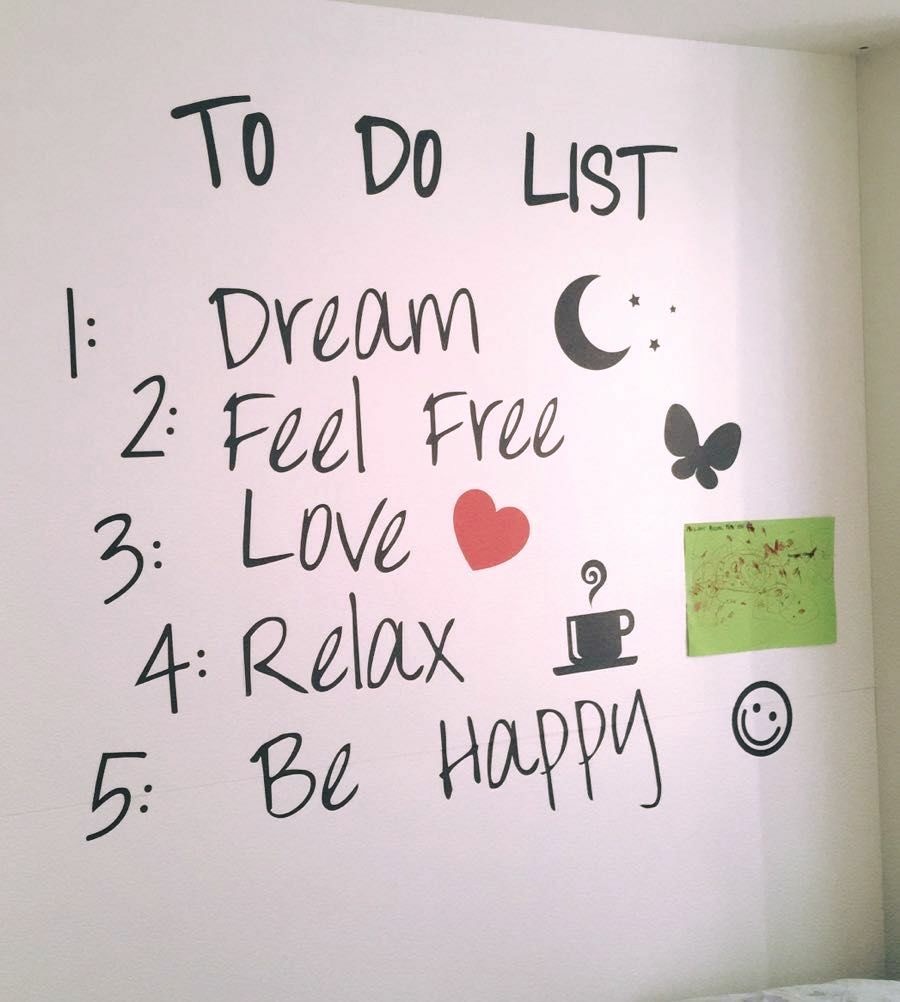 TO DO LIST
1: Dream
2: Feel Free
3: Love
4: Relax
5: Be Happy